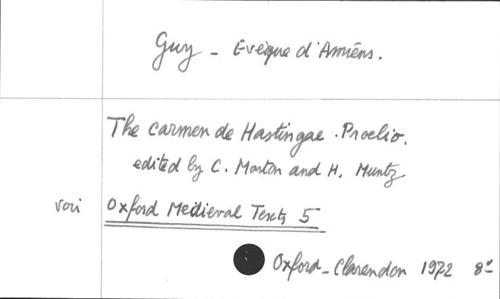 Guy - Evèque d'Amiens.
The Carmen de Hastingae . Proelio.
edited by C. Morton and H. Muntz
voir Oxford Medieval Texts 5
Oxford - Clarendon 1972 8°